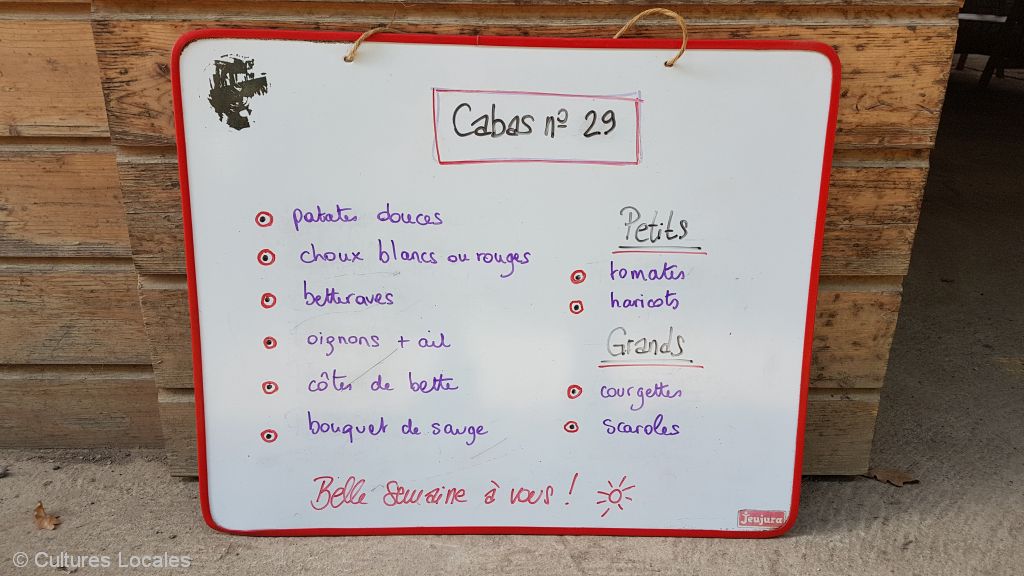 Cabas nº 29
patates douces
choux blancs ou rouges
betteraves
oignons + ail
côtes de bette
bouquet de sauge
Petits
tomates
haricots
Grands
courgettes
scaroles
Belle semaine à vous !
Jeujura
© Cultures Locales